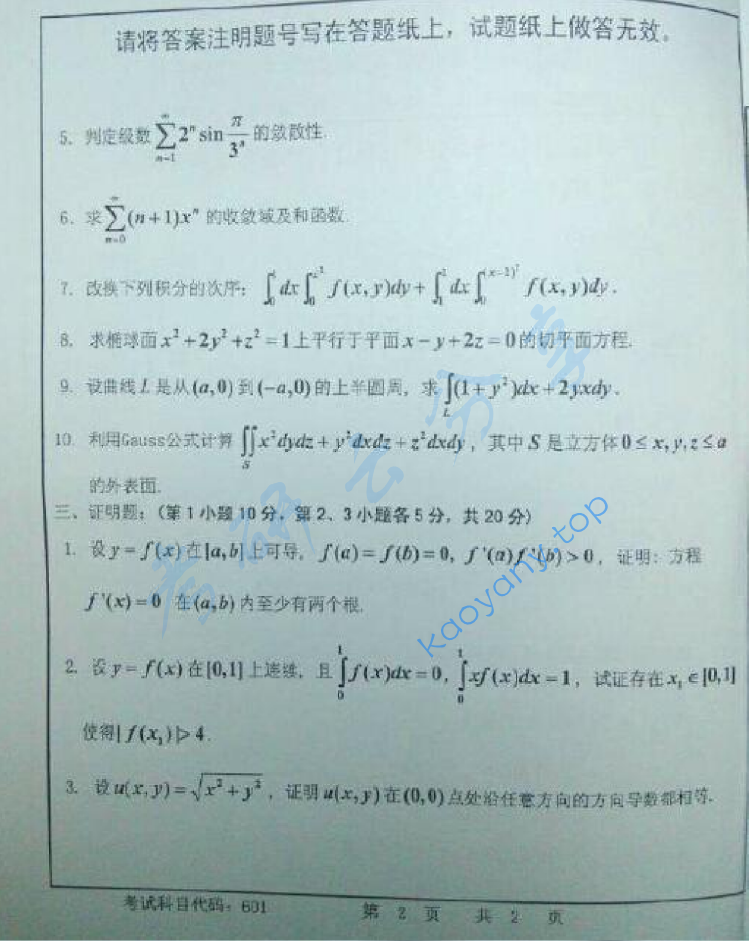 请将答案注明题号写在答题纸上，试题纸上做答无效。
5. 判定级数 $\sum_{n=1}^{\infty} 2^n \sin \frac{\pi}{3^n}$ 的敛散性.
6. 求 $\sum_{n=0}^{\infty} (n+1)x^n$ 的收敛域及和函数.
7. 改换下列积分的次序: $\int_0^1 dx \int_0^{x^2} f(x,y)dy + \int_1^2 dx \int_0^{(x-2)^2} f(x,y)dy$.
8. 求椭球面 $x^2+2y^2+z^2=1$ 上平行于平面 $x-y+2z=0$ 的切平面方程.
9. 设曲线 $L$ 是从 $(a,0)$ 到 $(-a,0)$ 的上半圆周，求 $\int_L (1+y^2)dx+2yxdy$.
10. 利用Gauss公式计算 $\iint_S x^2dydz+y^2dxdz+z^2dxdy$，其中 $S$ 是立方体 $0 \le x,y,z \le a$
的外表面.
三、证明题：（第1小题10分，第2、3小题各5分，共20分）
1. 设 $y=f(x)$ 在 $[a,b]$ 上可导，$f(a)=f(b)=0$, $f'(a)f'(b)>0$，证明：方程
$f'(x)=0$ 在 $(a,b)$ 内至少有两个根.
2. 设 $y=f(x)$ 在 $[0,1]$ 上连续，且 $\int_0^1 f(x)dx=0$, $\int_0^1 xf(x)dx=1$，试证存在 $x_1 \in [0,1]$
使得 $|f(x_1)|>4$.
3. 设 $u(x,y)=\sqrt{x^2+y^2}$，证明 $u(x,y)$ 在 $(0,0)$ 点处沿任意方向的方向导数都相等.
考试科目代码：601 第 2 页 共 2 页
考研云分享
kaoyany.top